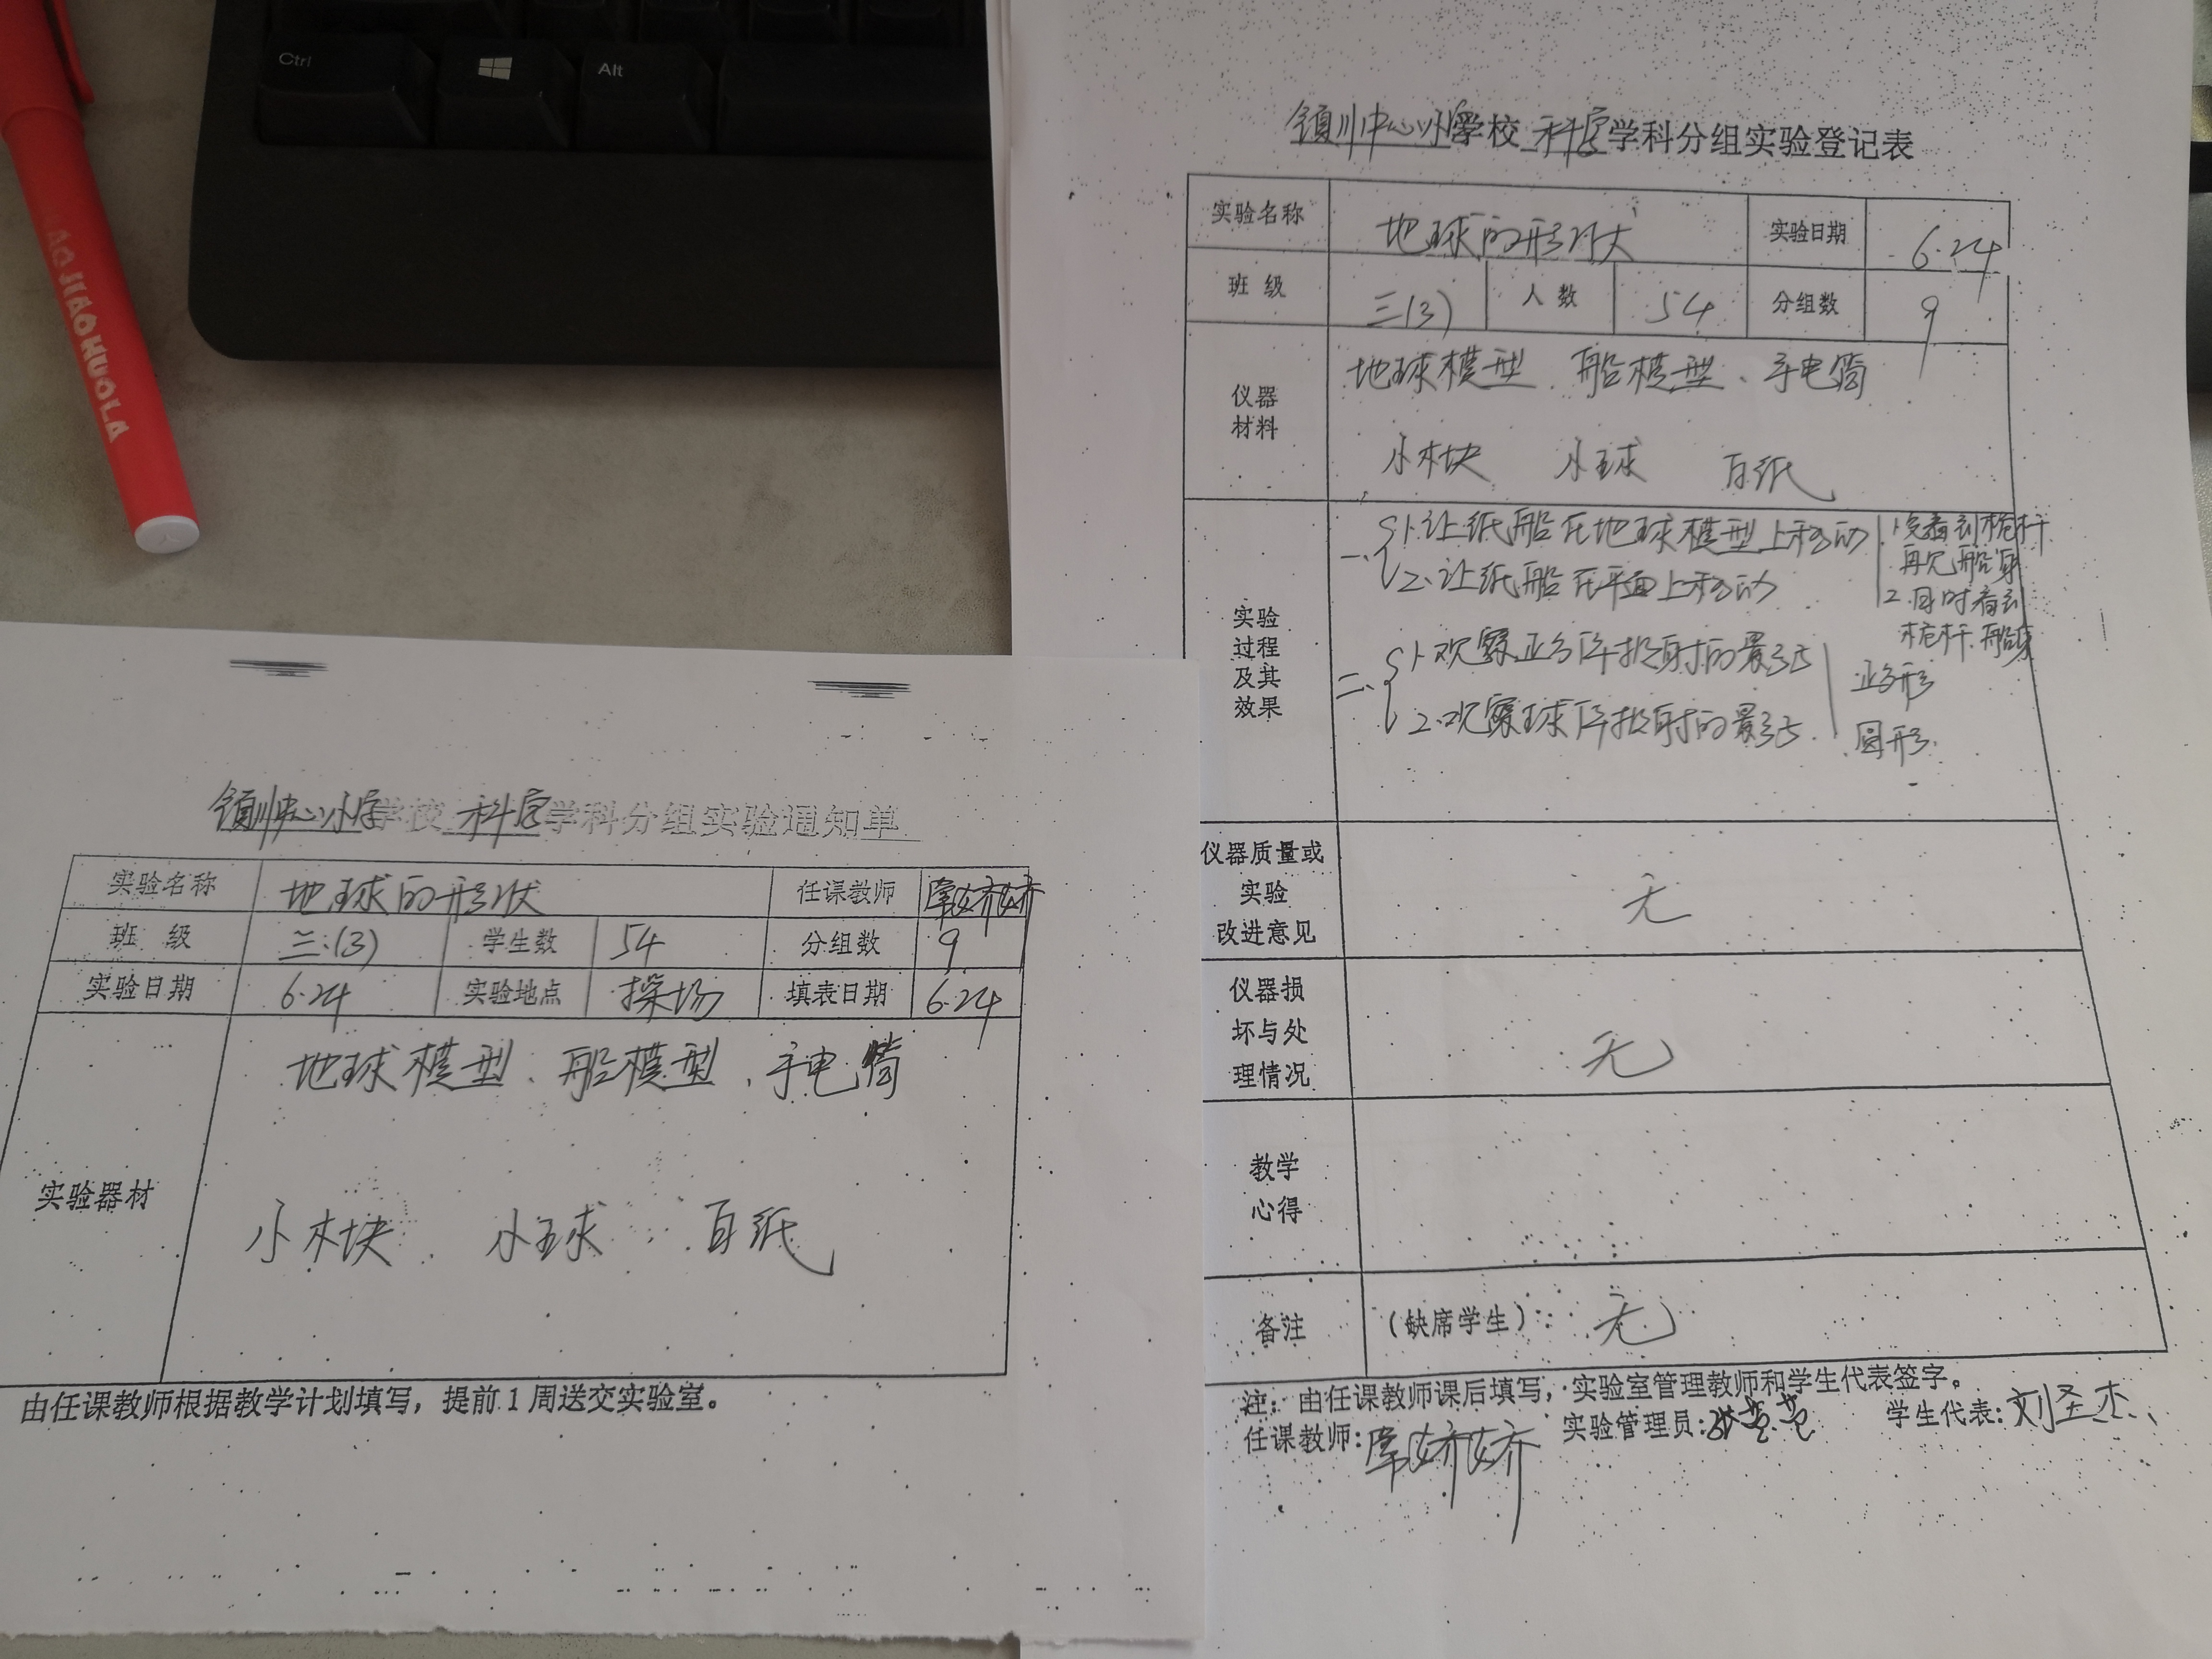 Ctrl
Alt
AOJIAOHUOLA
镇川中心小学学校 科学 学科分组实验登记表
实验名称 地球的形状 实验日期 6.24
班 级 三(3) 人 数 54 分组数 9
仪器
材料
地球模型、船模型、手电筒
小木块 小球 白纸
实验
过程
及其
效果
一、1.让纸船在地球模型上移动
2.让纸船在平面上移动
1.先看到桅杆
再见船身
2.同时看到
桅杆、船身
二、1.观察 投射的影子
2.观察球体投射的影子
圆形
仪器质量或
实验
改进意见
无
仪器损
坏与处
理情况
无
教学
心得
备注 (缺席学生): 无
注:由任课教师课后填写,实验室管理教师和学生代表签字。
任课教师:常娇娇 实验管理员: 学生代表:刘圣杰
镇川中心小学学校 科学 学科分组实验通知单
实验名称 地球的形状 任课教师 常娇娇
班 级 三(3) 学生数 54 分组数 9
实验日期 6.24 实验地点 操场 填表日期 6.24
实验器材
地球模型、船模型、手电筒
小木块 小球 白纸
由任课教师根据教学计划填写,提前1周送交实验室。